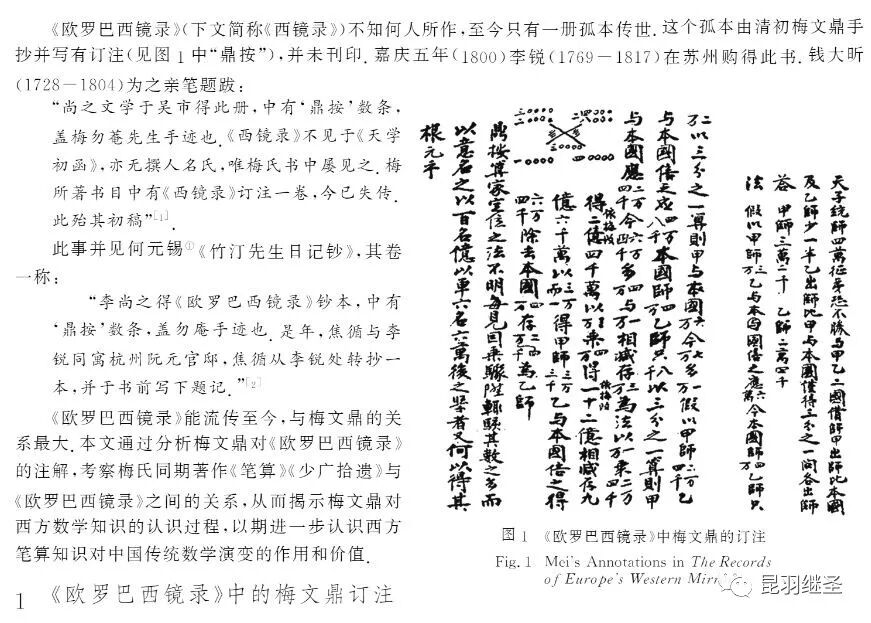 《欧罗巴西镜录》(下文简称《西镜录》)不知何人所作,至今只有一册孤本传世.这个孤本由清初梅文鼎手
抄并写有订注(见图 1 中“鼎按”),并未刊印.嘉庆五年(1800)李锐(1769-1817)在苏州购得此书.钱大昕
(1728-1804)为之亲笔题跋:
“尚之文学于吴市得此册,中有‘鼎按’数条,
盖梅勿菴先生手迹也.《西镜录》不见于《天学
初函》,亦无撰人名氏,唯梅氏书中屡见之.梅
所著书目中有《西镜录》订注一卷,今已失传.
此殆其初稿”[1].
此事并见何元锡①《竹汀先生日记钞》,其卷
一称:
“李尚之得《欧罗巴西镜录》钞本,中有
‘鼎按’数条,盖勿庵手迹也.是年,焦循与李
锐同寓杭州阮元官邸,焦循从李锐处转抄一
本,并于书前写下题记.”[2]
《欧罗巴西镜录》能流传至今,与梅文鼎的关
系最大.本文通过分析梅文鼎对《欧罗巴西镜录》
的注解,考察梅氏同期著作《笔算》《少广拾遗》与
《欧罗巴西镜录》之间的关系,从而揭示梅文鼎对
西方数学知识的认识过程,以期进一步认识西方
笔算知识对中国传统数学演变的作用和价值.
1 《欧罗巴西镜录》中的梅文鼎订注
天子統師四萬征某恐不勝与甲乙二國借師甲出師比本國
及乙師少一半乙出師比甲与本國僅得三分之一問各出師
荅 甲師三萬二千 乙師二萬四千
法 假以甲師三万乙与本國倍之應六萬今本國師四万乙師只
二以三分之一算則甲与本國六万今七万多一万假以甲師二万乙
与本國倍之成八千本國師四万乙師只八千以三分之一算則甲
与本國應二万四千今六万
得二億四千萬以
億六千萬以 得甲師三万二千乙与本國倍之得
六万四千除去本國四万存二万四千為乙師
鼎按筭家定位之法不明每見因乘驟陞輒駭其數之多而
以意名之以百名億以單六名六萬後之學者又何以得其
根元乎
图 1 《欧罗巴西镜录》中梅文鼎的订注
Fig. 1 Mei's Annotations in The Records
of Europe's Western
昆羽继圣